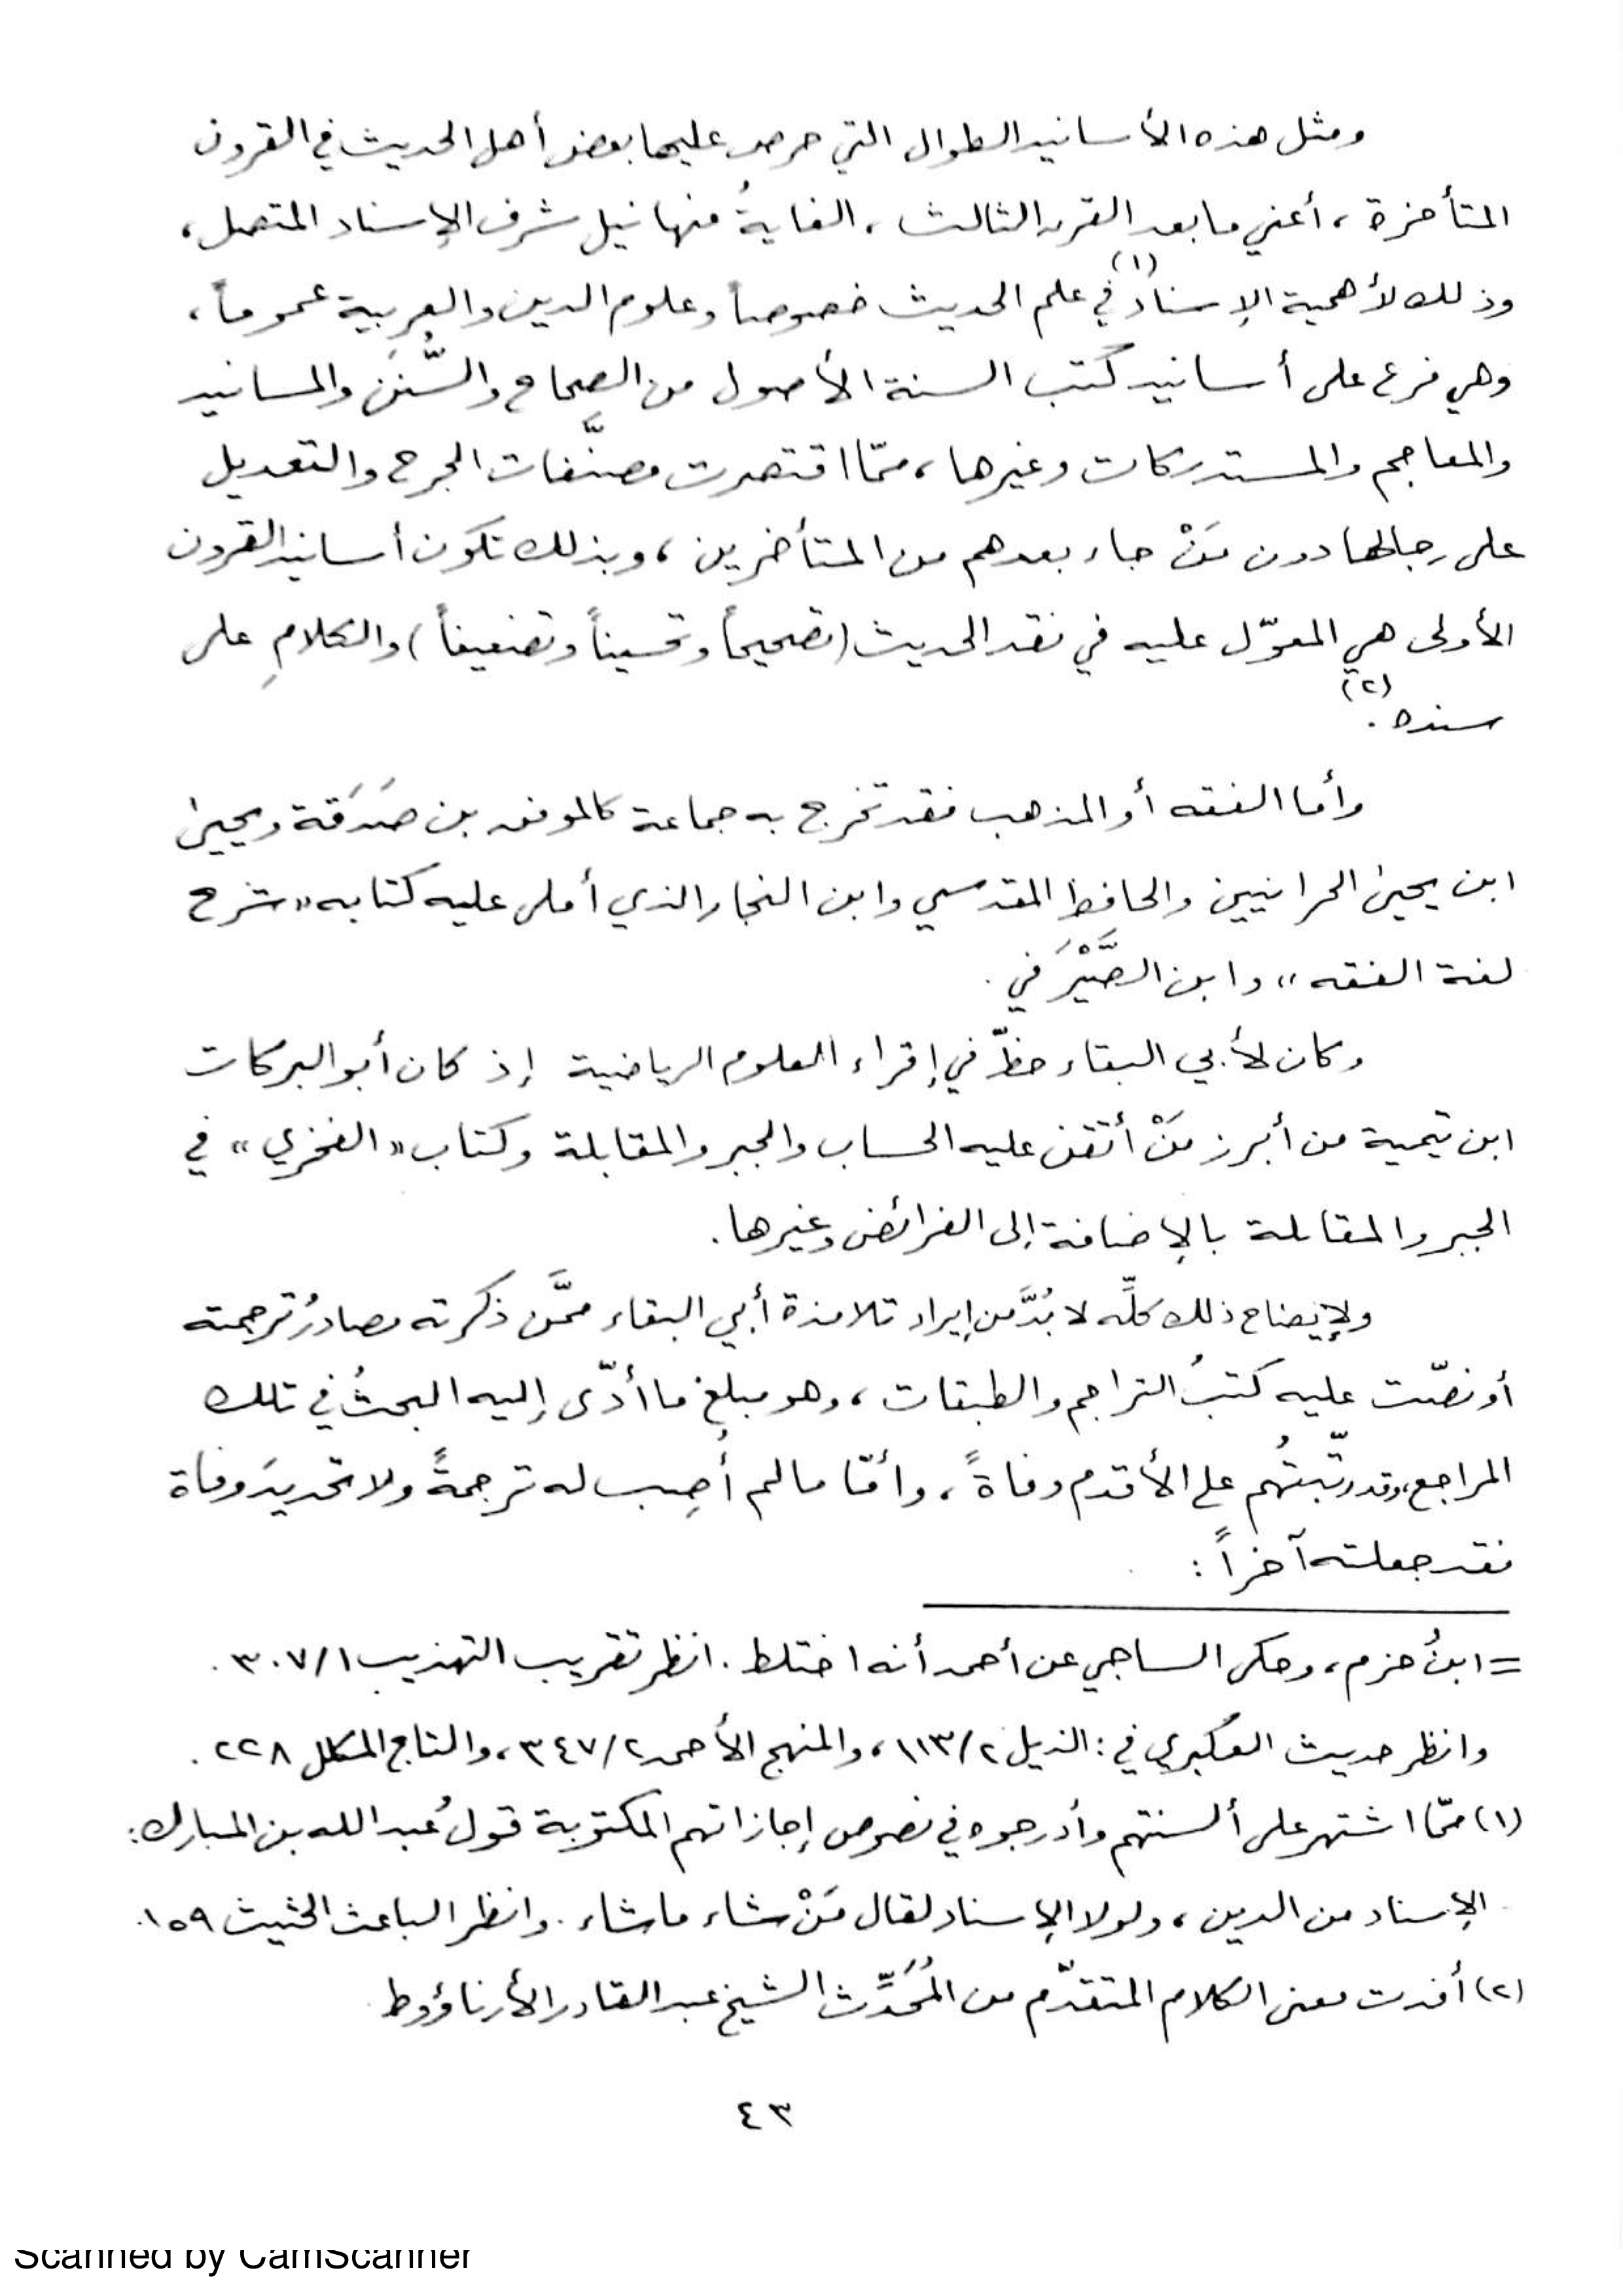 ومثل هذه الأسانيد الطوال التي حرص عليها بعض أهل الحديث في القرون
المتأخرة، أعني ما بعد القرن الثالث، الغايةُ منها نيل شرف الإسناد المتصل،
وذلك لأهمية الإسناد(١) في علم الحديث خصوصاً وعلوم الدين والعربية عموماً،
وهي فرع على أسانيد كتب السنة الأصول من الصحاح والسُّنَن والمسانيد
والمعاجم والمستدركات وغيرها، ممّا اقتصرت مصنَّفات الجرح والتعديل
على رجالها دون مَنْ جاء بعدهم من المتأخرين، وبذلك تكون أسانيد القرون
الأولى هي المعوّل عليه في نقد الحديث (تصحيحاً وتحسيناً وتضعيفاً) والكلامِ على
سنده(٢).
وأما الفقه أو المذهب فقد تخرج به جماعة كالموفق بن صَدَقة ويحيى
ابن يحيى الحرانيين والحافظ المقدسي وابن النجار الذي أملى عليه كتابه «شرح
لغة الفقه» وابن الصَّيْرَفي.
وكان لأبي البقاء حظّ في إقراء العلوم الرياضية إذ كان أبو البركات
ابن تيمية من أبرز مَنْ أتقن عليه الحساب والجبر والمقابلة وكتاب «الفخري» في
الجبر والمقابلة بالإضافة إلى الفرائض وغيرها.
ولإيضاح ذلك كلِّه لا بُدَّ من إيراد تلامذة أبي البقاء ممَّن ذكرته مصادرُ ترجمته
أو نصّت عليه كتبُ التراجم والطبقات، وهو مبلغ ما أدّى إليه البحثُ في تلك
المراجع، وقد رتّبتُهم على الأقدم وفاةً، وأمّا ما لم أُصِب له ترجمةً ولا تحديدَ وفاة
فقد جعلته آخراً:
= ابنُ حزم، وحكى الساجي عن أحمد أنه اختلط. انظر تقريب التهذيب ٣٠٧/١.
وانظر حديث العكبري في: الذيل ١١٣/٢، والمنهج الأحمد ٣٤٧/٢، والتاج المكلل ٢٢٨.
(١) ممّا اشتهر على ألسنتهم وأدرجوه في نصوص إجازاتهم المكتوبة قولُ عبد الله بن المبارك:
الإسناد من الدين، ولولا الإسناد لقال مَنْ شاء ما شاء. وانظر الباعث الحثيث ١٥٩.
(٢) أفدت معنى الكلام المتقدّم من المُحَدِّث الشيخ عبد القادر الأرناؤوط.
٤٣
Scanned by CamScanner